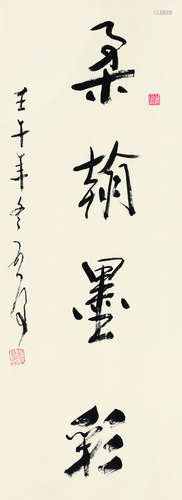 柔翰墨彩
壬午年冬